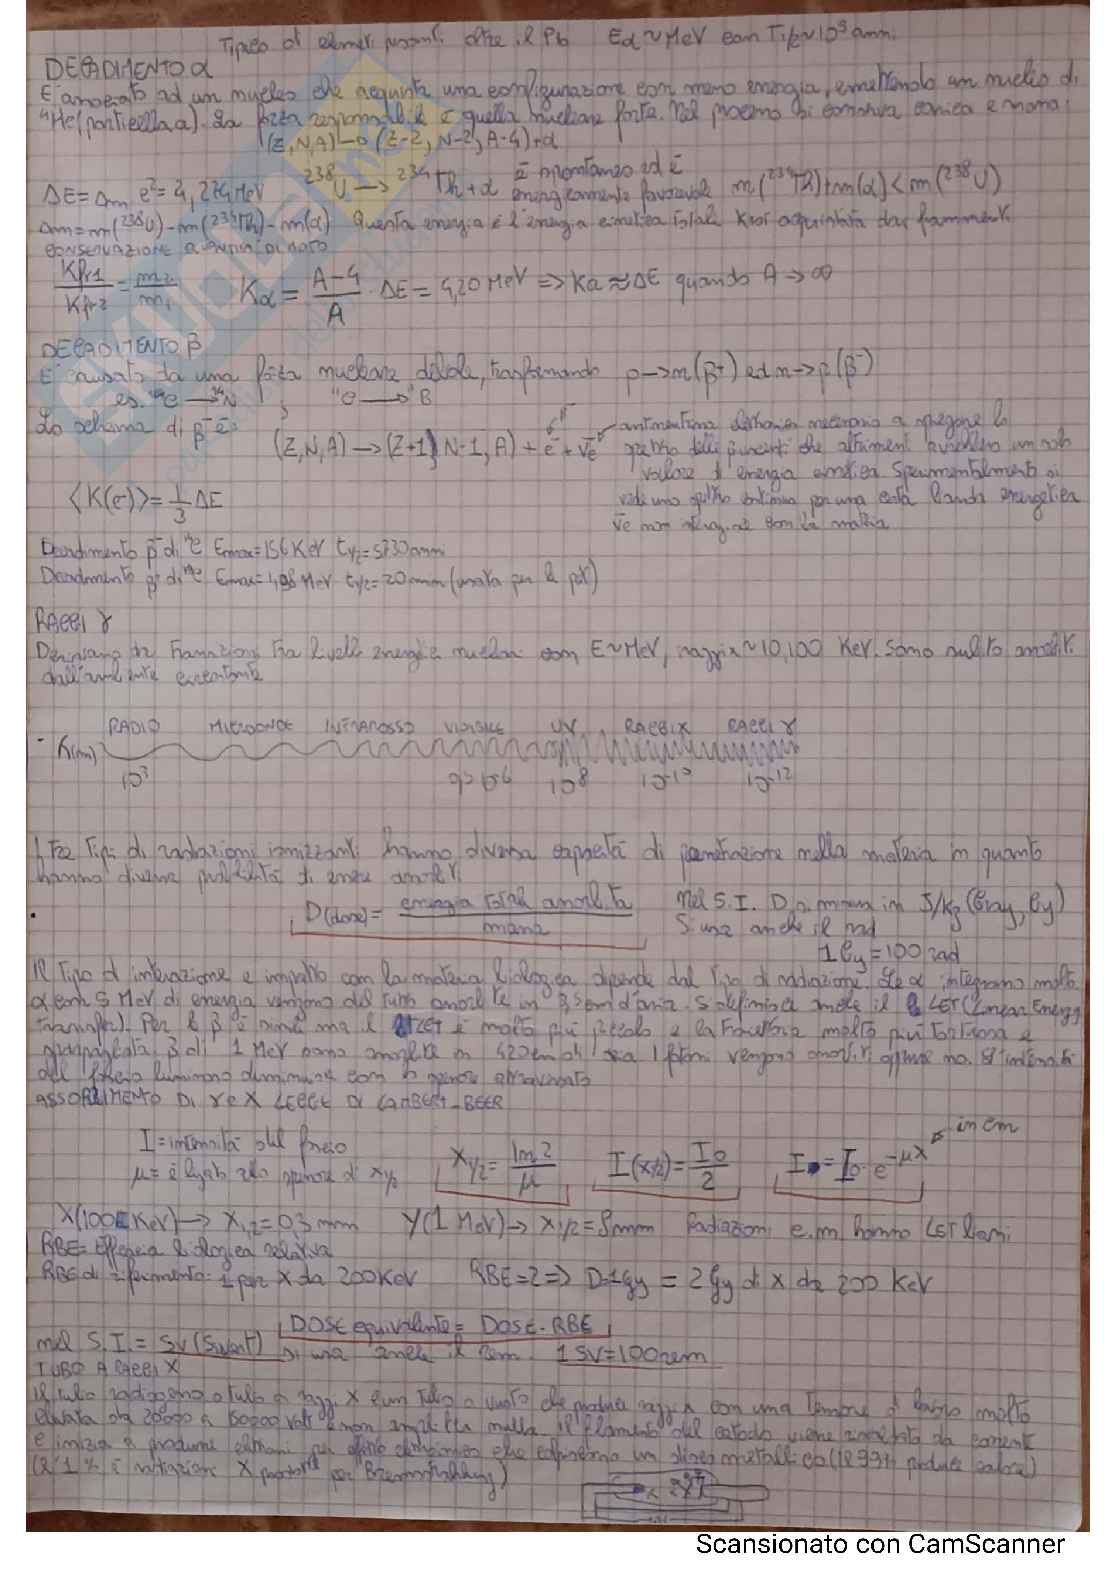 Tipico di elementi pesanti oltre il Pb Eα~MeV con T1/2~10⁹ anni
DECADIMENTO α
È associato ad un nucleo che acquista una configurazione con meno energia, emettendo un nucleo di
⁴He (particella α). La forza responsabile è quella nucleare forte. Nel processo si conserva carica e massa:
(Z,N,A)→(Z-2, N-2, A-4)+α
ΔE=Δm c²=4,274MeV ²³⁸U → ²³⁴Th+α È spontaneo ed è energicamente favorevole m(²³⁴Th)+m(α)<m(²³⁸U)
Δm=m(²³⁸U)-m(²³⁴Th)-m(α) Questa energia è l'energia cinetica totale acquistata dai frammenti
CONSERVAZIONE Q. MOTO DI MOTO
Kfr1/Kfr2 = m2/m1 Kα = (A-4)/A · ΔE = 4,20 MeV ⇒ Kα ≈ ΔE quando A → ∞
DECADIMENTO β
È causato da una forza nucleare debole, trasformando p→n(β⁺) ed n→p(β⁻)
es. ¹⁴C → ¹⁴N ; ¹¹C → ¹¹B
Lo schema di β⁻ è:
(Z,N,A)→(Z+1, N-1, A)+e⁻+ν̄e
β⁻
antineutrino elettronico necessario a spiegare lo
spettro delle energie che altrimenti avrebbero un solo
valore di energia cinetica. Sperimentalmente si
vede uno spettro continuo per una certa banda energetica
ν̄e non interagisce con la materia
⟨K(e⁻)⟩=1/3 ΔE
Decadimento β⁻ di ¹⁴C Emax=156 KeV t1/2=5730 anni
Decadimento β⁺ di ¹¹C Emax=1,98 MeV t1/2=20 min (usata per la pet)
RAGGI γ
Derivano da transizioni tra livelli energetici nucleari con E~MeV, raggi x ~10,100 KeV. Sono subito assorbiti
dall'ambiente circostante
RADIO MICROONDE INFRAROSSO VISIBILE UV RAGGI X RAGGI γ
λ(m)
10³ 10⁸ 10⁻¹⁰ 10⁻¹²
I tre tipi di radiazioni ionizzanti hanno diversa capacità di penetrazione nella materia in quanto
hanno diverse probabilità di essere assorbiti
D(dose)= energia totale assorbita / massa Nel S.I. D si misura in J/Kg (Gray, Gy)
Si usa anche il rad
1Gy=100 rad
Il tipo di interazione e impatto con la materia biologica dipende dal tipo di radiazione. Le α interagiscono molto
α con 5 MeV di energia vengono del tutto assorbite in 3,5cm d'aria. Si definisce anche il LET (Linear Energy
transfer). Per le β è simile ma il LET è molto più piccolo e la traiettoria molto più tortuosa e
β di 1 MeV sono assorbite in 420cm di aria I fotoni vengono assorbiti oppure no. L'intensità
del fascio luminoso diminuisce con lo spessore attraversato
ASSORBIMENTO DI γ e X LEGGE DI LAMBERT-BEER
I=intensità del fascio
μ=è legato allo spessore di x1/2
X1/2=ln2/μ I(x1/2)=I0/2 I=I0·e^-μx in cm
X(100KeV)→X1/2=0,3mm γ(1 MeV)→X1/2=8mm Radiazioni e.m hanno LET bassi
RBE=Efficacia biologica relativa
RBE di riferimento: 1 per X da 200KeV RBE=2⇒D=1Gy = 2Gy di X da 200 KeV
DOSE equivalente= DOSE·RBE
nel S.I.= Sv (Sievert) Si usa anche il rem 1 SV=100rem
TUBO A RAGGI X
Il tubo radiogeno o tubo a raggi X è un tubo a vuoto che produce raggi x con una tensione di lavoro molto
elevata da 20000 a 150000 volt Il filamento del catodo viene da corrente
e inizia a produrre elettroni per effetto che colpiscono un disco metallico (il 99% produce calore)
(l'1% è radiazione X prodotta per Bremsstrahlung)
Scansionato con CamScanner